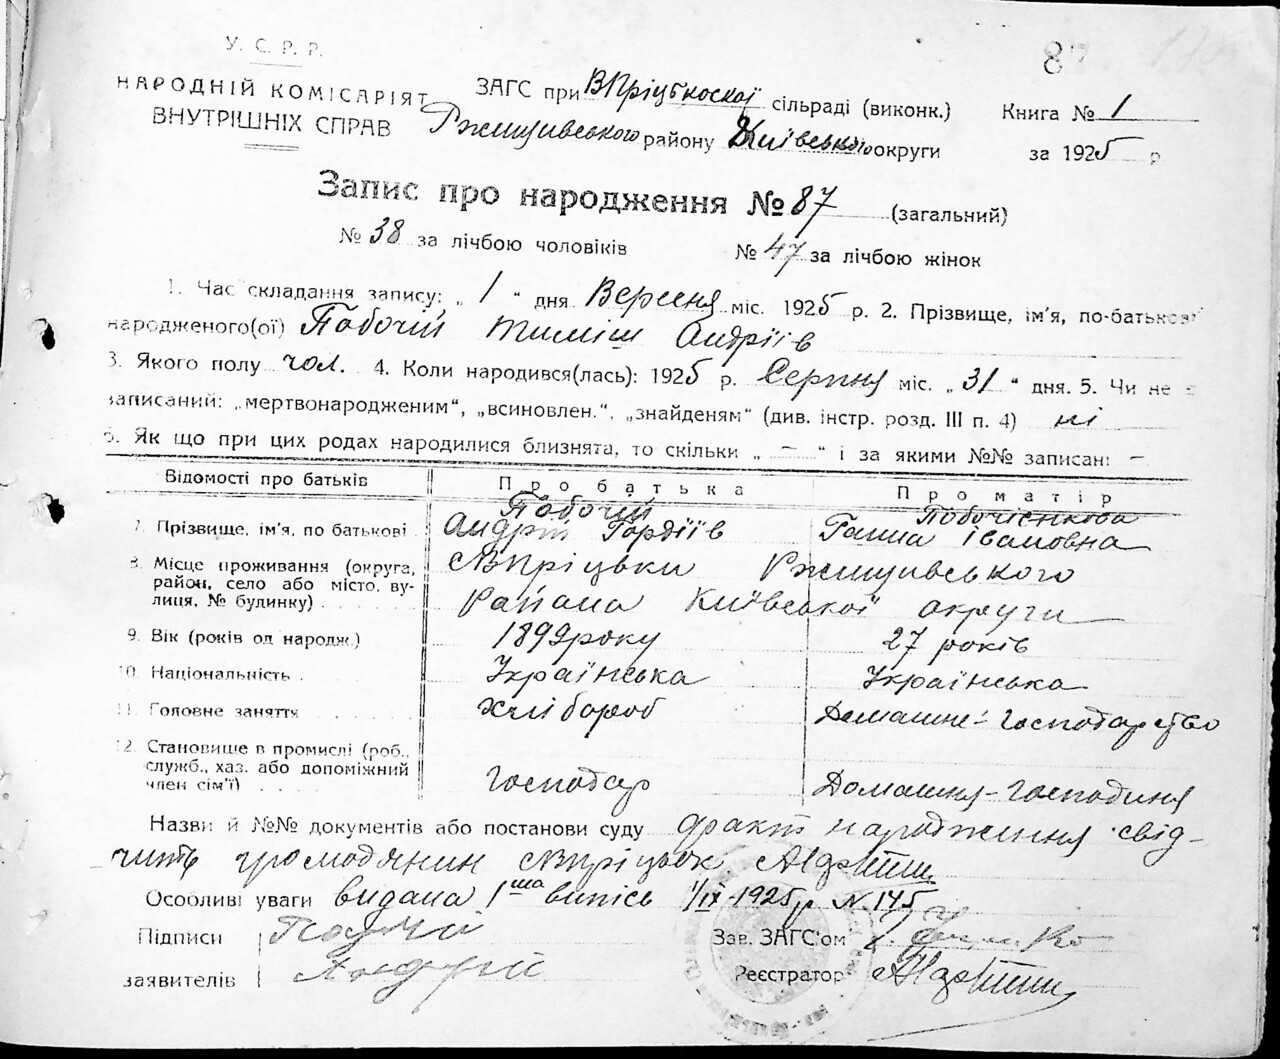 87
У. С. Р. Р.
НАРОДНІЙ КОМІСАРІЯТ
ВНУТРІШНІХ СПРАВ
ЗАГС при ВПріцькоскої сільраді (виконк.)
Ржищивського району Київської округи
Книга № 1
за 1925 р
Запис про народження № 87 (загальний)
№ 38 за лічбою чоловіків № 47 за лічбою жінок
1. Час складання запису: „ 1 “ дня Вересня міс. 1925 р. 2. Прізвище, ім'я, по-батькові
народженого(ої) Побочій Тиміш Андріїв
3. Якого полу чол. 4. Коли народився(лась): 1925 р. Серпня міс. „ 31 “ дня. 5. Чи не є
записаний: „мертвонародженим“, „всиновлен.“, „знайденям“ (див. інстр. розд. III п. 4) ні
6. Як що при цих родах народилися близнята, то скільки „ – “ і за якими №№ записані –
Відомості про батьків Про батька Про матір
7. Прізвище, ім'я, по батькові Побочій Андрій Гордіїв Побочієнкова Ганна Івановна
8. Місце проживання (округа, район, село або місто, вулиця, № будинку) ВПріцьки Ржищивського
Района Київської округи
9. Вік (років од народж.) 1899 року 27 років
10. Національність Українська Українська
11. Головне заняття хлібороб Домашнє-Господарство
12. Становише в промислі (роб., служб., хаз. або допоміжний член сім'ї) Господар Домашня-Господиня
Назви й №№ документів або постанови суду факт народження свід-
чить громодянин ВПріцьок
Особливі уваги видана 1ша випісь 1/IX-1925 р N 145
Підписи Побочій Зав. ЗАГС'ом
заявителів Андрій Реєстратор